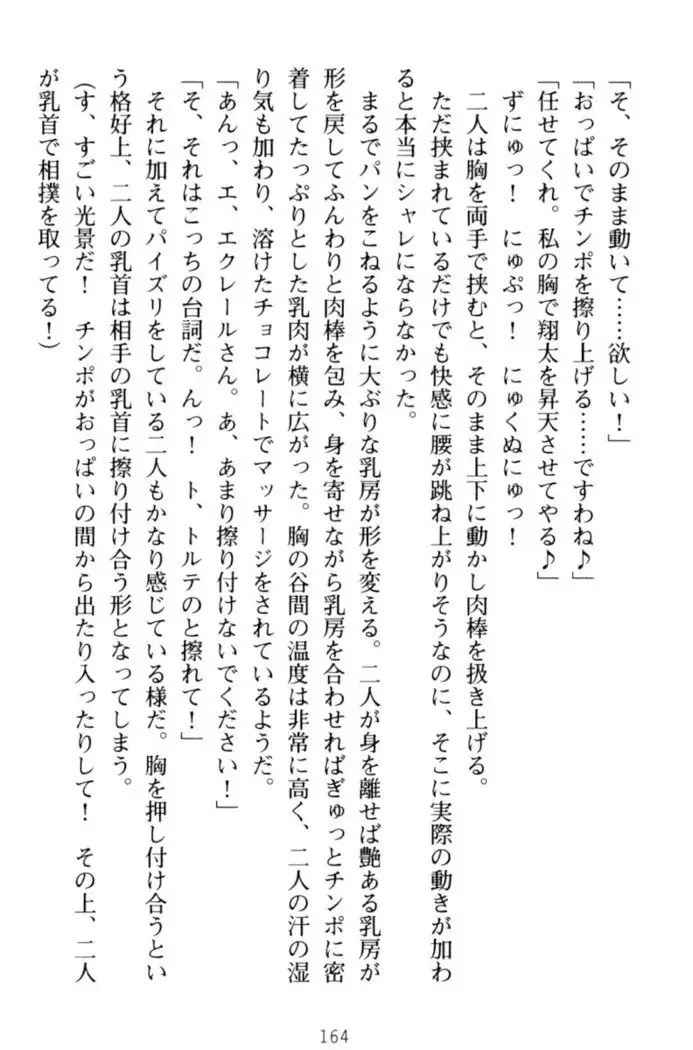 「そ、そのまま動いて……欲しい！」
「おっぱいでチンポを擦り上げる……ですわね♪」
「任せてくれ。私の胸で翔太を昇天させてやる♪」
ずにゅっ！　にゅぷっ！　にゅくぬにゅっ！
二人は胸を両手で挟むと、そのまま上下に動かし肉棒を扱き上げる。
ただ挟まれているだけでも快感に腰が跳ね上がりそうなのに、そこに実際の動きが加わ
ると本当にシャレにならなかった。
まるでパンをこねるように大ぶりな乳房が形を変える。二人が身を離せば艶ある乳房が
形を戻してふんわりと肉棒を包み、身を寄せながら乳房を合わせればぎゅっとチンポに密
着してたっぷりとした乳肉が横に広がった。胸の谷間の温度は非常に高く、二人の汗の湿
り気も加わり、溶けたチョコレートでマッサージをされているようだ。
「あんっ、エ、エクレールさん。あ、あまり擦り付けないでください！」
「そ、それはこっちの台詞だ。んっ！　ト、トルテのと擦れて！」
それに加えてパイズリをしている二人もかなり感じている様だ。胸を押し付け合うとい
う格好上、二人の乳首は相手の乳首に擦り付け合う形となってしまう。
（す、すごい光景だ！　チンポがおっぱいの間から出たり入ったりして！　その上、二人
が乳首で相撲を取ってる！）
164